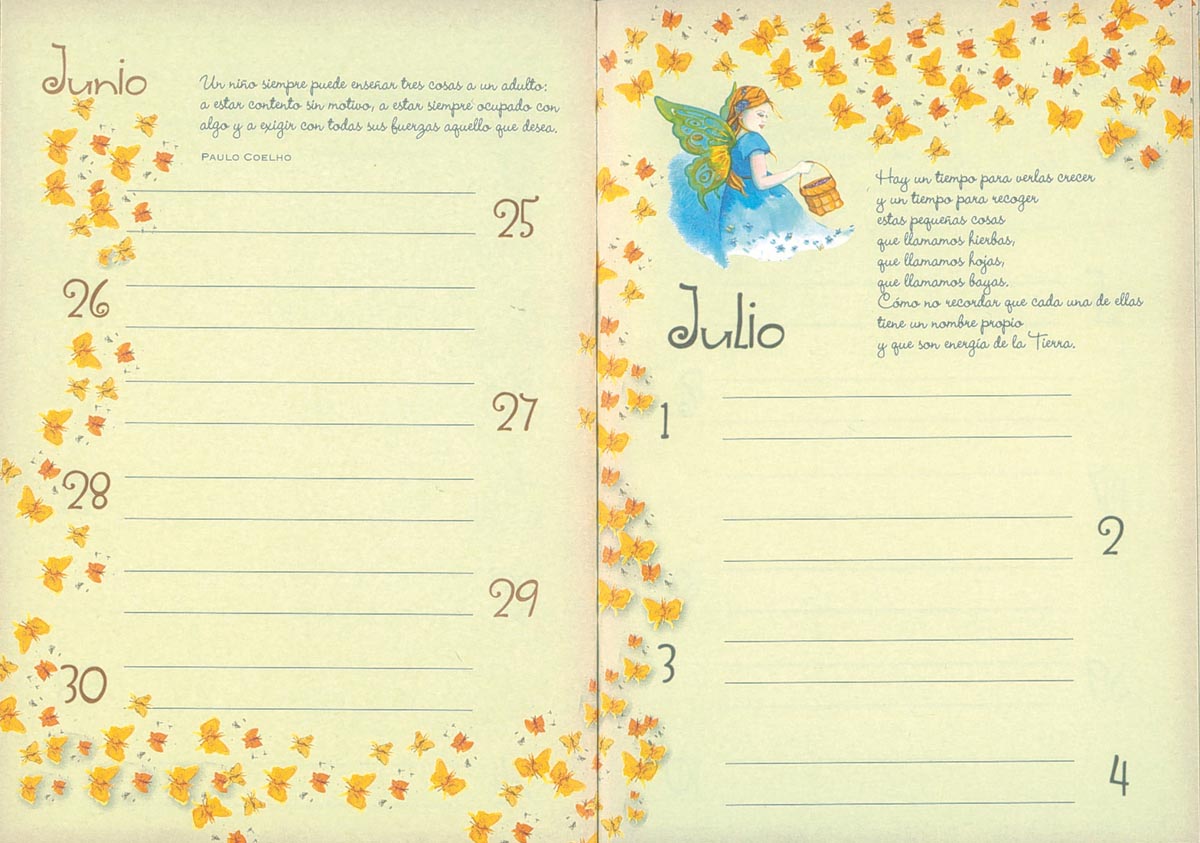 Junio
Un niño siempre puede enseñar tres cosas a un adulto:
a estar contento sin motivo, a estar siempre ocupado con
algo y a exigir con todas sus fuerzas aquello que desea.
PAULO COELHO
25
26
27
28
29
30
Hay un tiempo para verlas crecer
y un tiempo para recoger
estas pequeñas cosas
que llamamos hierbas,
que llamamos hojas,
que llamamos bayas.
Cómo no recordar que cada una de ellas
tiene un nombre propio
y que son energía de la Tierra.
Julio
1
2
3
4